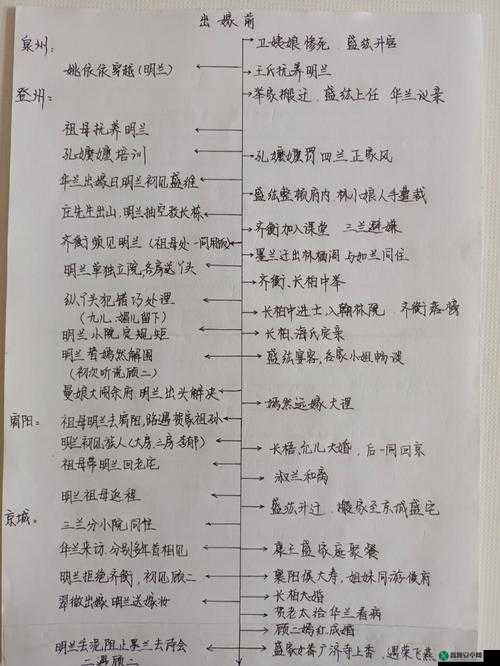 出嫁前
泉州：
卫姨娘惨死，盛纮升官
姚依依穿越（明兰）
王氏抚养明兰
登州：
举家搬迁，盛纮上任 华兰议亲
祖母抚养明兰
孔嬷嬷培训
孔嬷嬷罚四兰正家风
华兰出嫁日明兰初见盛维
盛纮整顿府内，林小娘人手暂裁
庄先生出山，明兰抽空教长栋
齐衡加入课堂 三兰避嫌
齐衡频见明兰（祖母处一同用饭）
墨兰迁出林栖阁 与如兰同住
明兰单独立院，各房送丫头
齐衡、长柏中举
纵丫头犯错巧处理
（九儿、媚儿留下）
长柏中进士，入翰林院 齐衡落榜
明兰小院定规矩
长柏，海氏定亲
明兰替嫣然解围
（初次听说顾二）
盛纮宴客，各家小姐畅谈
曼娘大闹余府，明兰出头解决
嫣然远嫁大理
宥阳：
祖母明兰去宥阳，路遇贺家祖孙
明兰初见族人（大房三房香郁）
长梧、允儿大婚，后一同回京
祖母带明兰回老宅
淑兰和离
明兰祖母返程
盛纮升迁，搬家至京城盛宅
京城：
三兰分小院同住
华兰来访，分别多年首相见
康王盛家庭聚餐
明兰拒绝齐衡，初见顾二
襄阳侯大寿，姐妹同游侯府
长柏大婚
翠微出嫁 明兰送嫁妆
贺老太给华兰看病
顾二嫣红成婚
明兰去泥阻止墨兰去诗会
盛家女眷广济寺上香，遇荣飞燕
二遇顾二